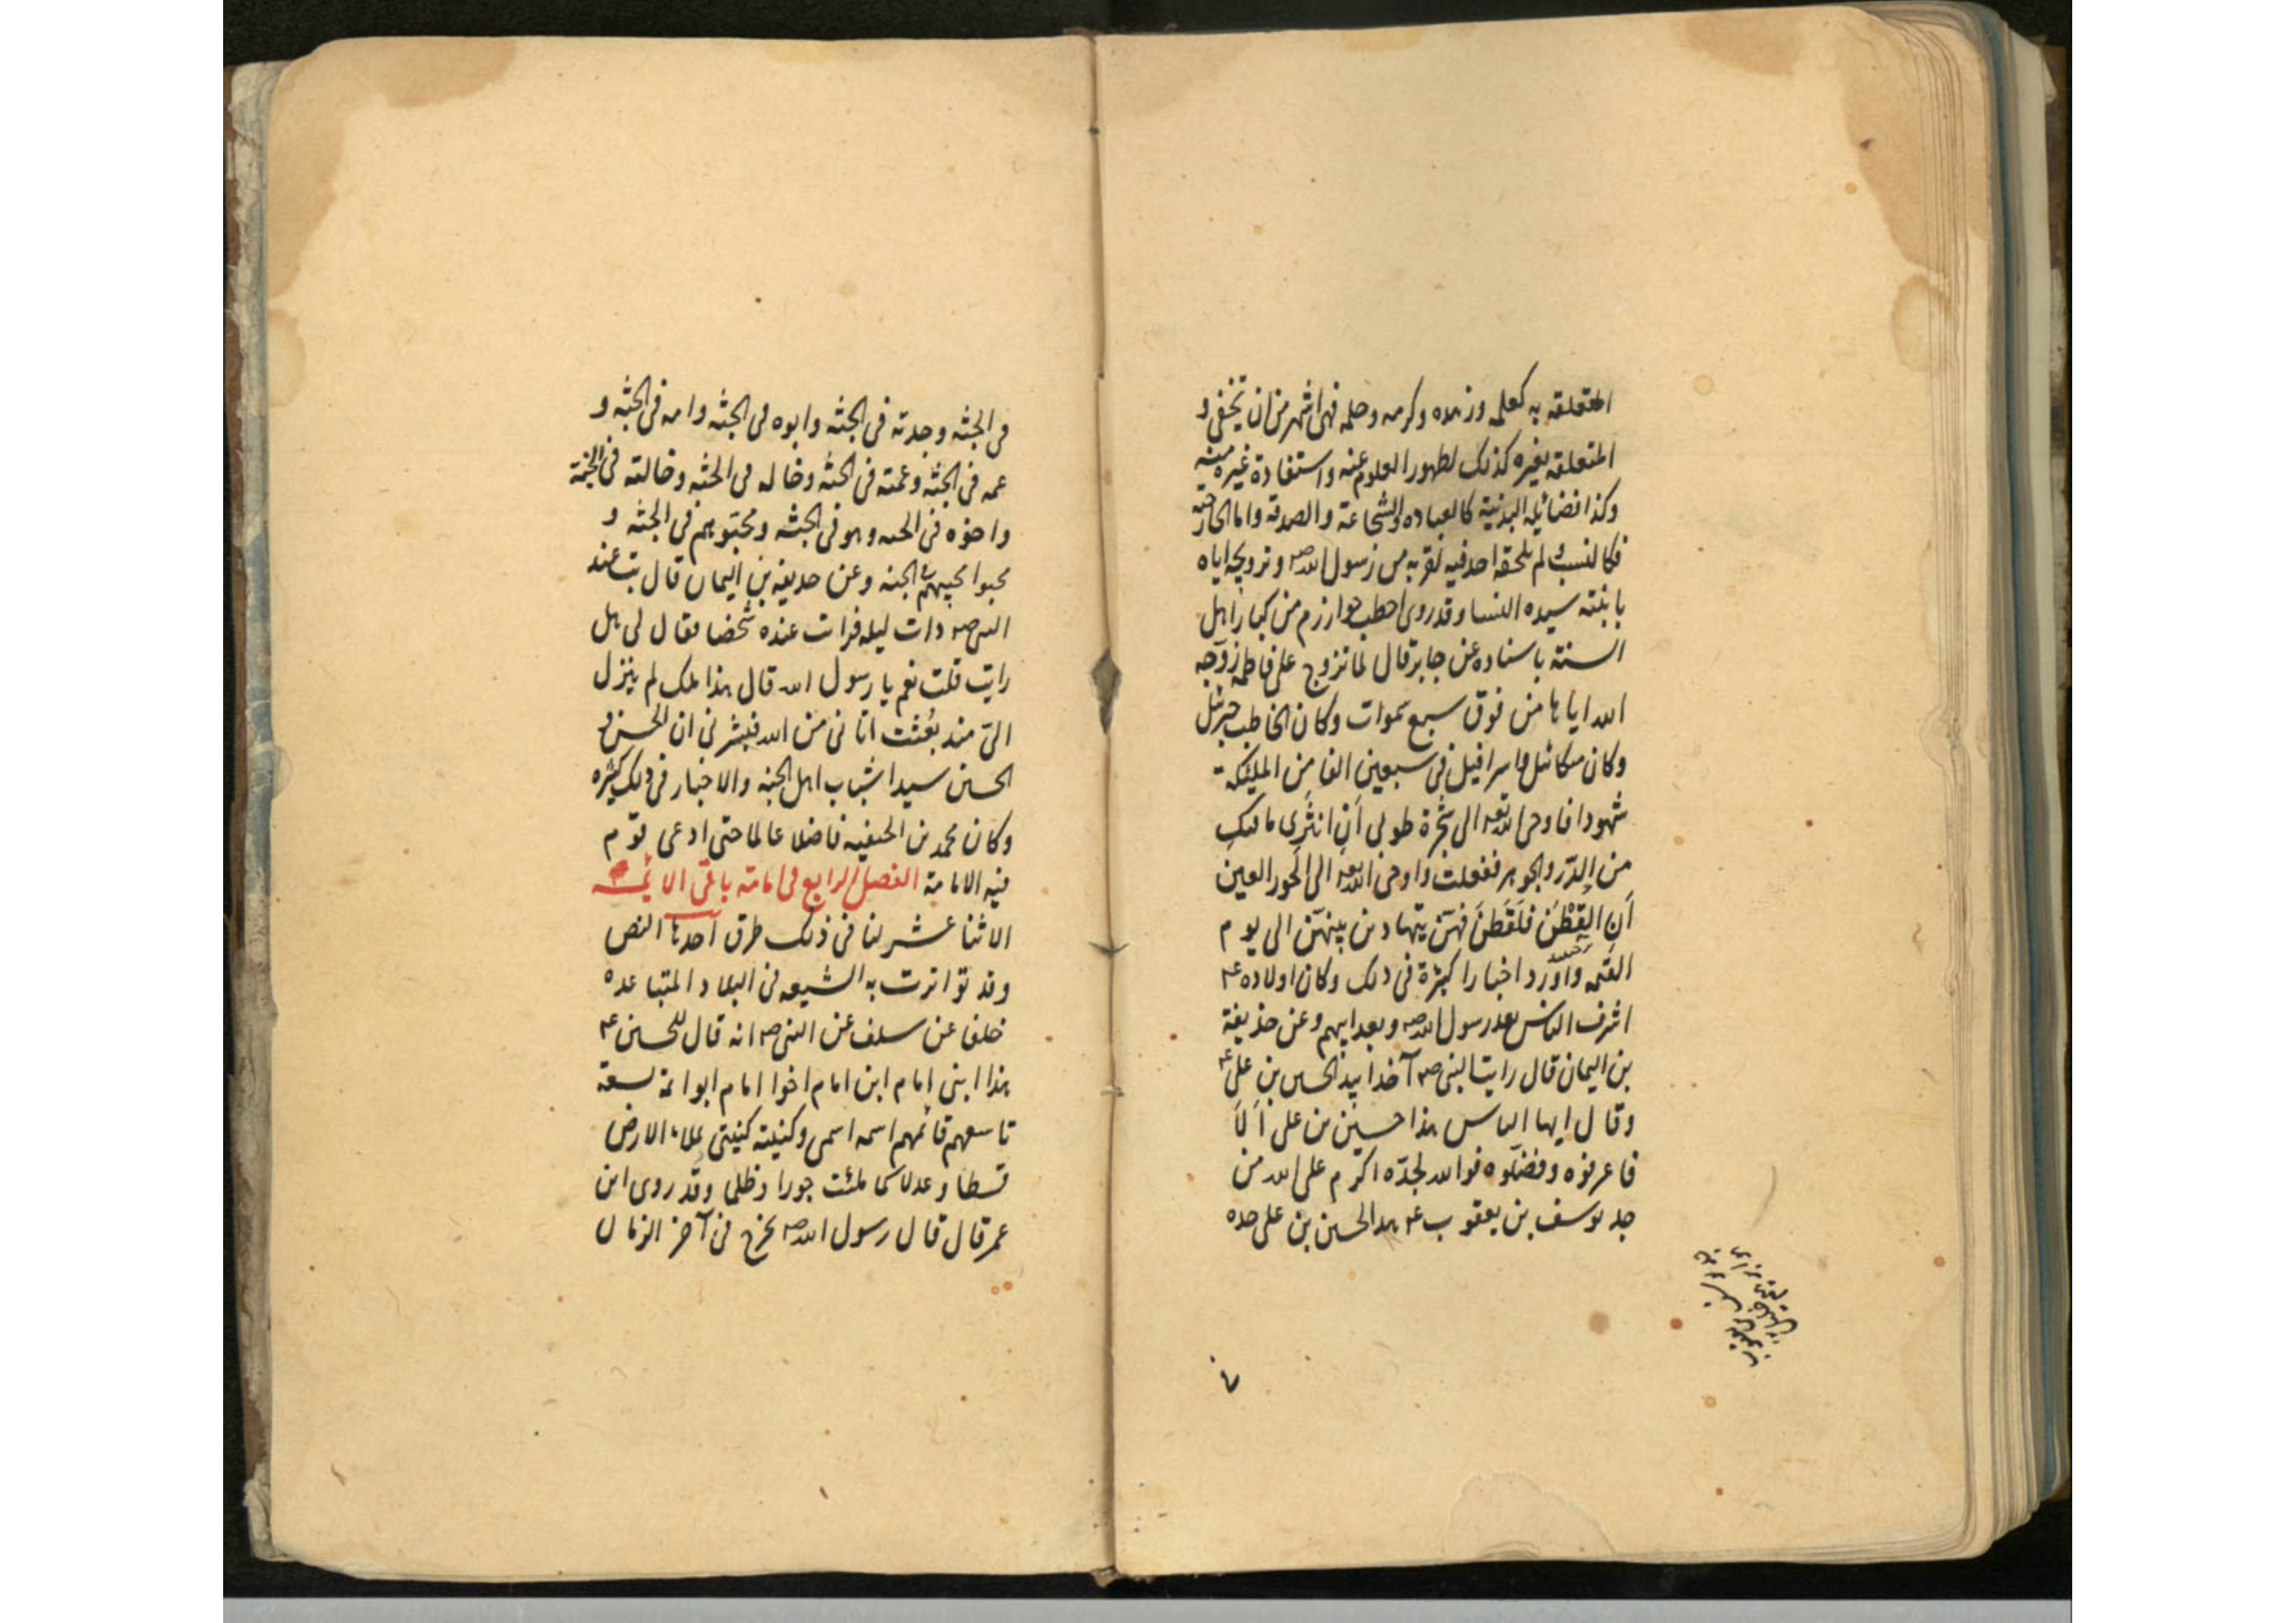 المتعلقه به كعلمه وزهده وكرمه وحلمه فهى اشهر من ان تخفى و
المتعلقه بغيره كذلك لظهور العلوم عنه واستفادة غيره منه
وكذا فضائله البدنية كالعباده والشجاعة والصدقة واما الخارجيه
فكالنسب و لم يلحقه احد فيه لقربه من رسول الله صم وتزويجه اياه
بابنته سيده النسا وقد روى اخطب خوارزم من كبار اهل
السنته باسناده عن جابر قال لما تزوج على فاطمه زوجه
الله اياها من فوق سبع سموات وكان الخاطب جبرئيل
وكان ميكائيل واسرافيل فى سبعين الفا من المليكة
شهودا فاوحى الله تعه الى شجرة طوبى اَنِ انثُرِى ما فيكِ
من الدّر والجوهر ففعلت واوحى الله تعه الى الحور العين
اَنِ القِطْنَ فلَقَطنَ فهنّ يتهادين بينهنّ الى يوم
القيمه واورد اخبارا كثيرة فى ذلك وكان اولاده عم
اشرف الناس بعد رسول الله صم وبعد ابيهم وعن حذيفة
بن اليمان قال رايت النبى صم آخذا بيد الحسين بن على عم
وقال ايها الناس هذا حسين بن على اَلاَ
فاعرفوه وفضّلوه فوالله لجدّه اكرم على الله من
جد يوسف بن يعقوب عم هذا الحسين بن على جده
فى الجنّه وجدته فى الجنّه وابوه فى الجنّه وامه فى الجنّه و
عمه فى الجنّه وعمته فى الجنّه وخاله فى الجنّه وخالته فى الجنة
واخوه فى الجنه وهو فى الجنّه ومحبّوهم فى الجنّه و
محبوا محبيهم فى الجنه وعن حذيفه بن اليمان قال بت عند
النبى صم ذات ليله فرات عنده شخصا فقال لى هل
رايت قلت نعم يا رسول الله قال هذا ملك لم ينزل
الىّ منذ بُعثت اتانى من الله فبشرنى ان الحسن و
الحسين سيدا شباب اهل الجنه والاخبار فى ذلك كثيره
وكان محمد بن الحنفيه فاضلا عالما حتى ادعى قوم
فيه الامامة الفصل الرابع فى امامته باقى الائمه
الاثنا عشر لنا فى ذلك طرق احدها النص
وقد تواترت به الشيعه فى البلاد المتباعده
خلفا عن سلف عن النبى صم انه قال للحسين عم
هذا ابنى امام ابن امام اخوا امام ابو ائمة تسعة
تاسعهم قائمهم اسمه اسمى وكنيته كنيتى يملاء الارض
قسطا وعدلا كما ملئت جورا وظلما وقد روى ابن
عمر قال قال رسول الله صم يخرج فى آخر الزمان